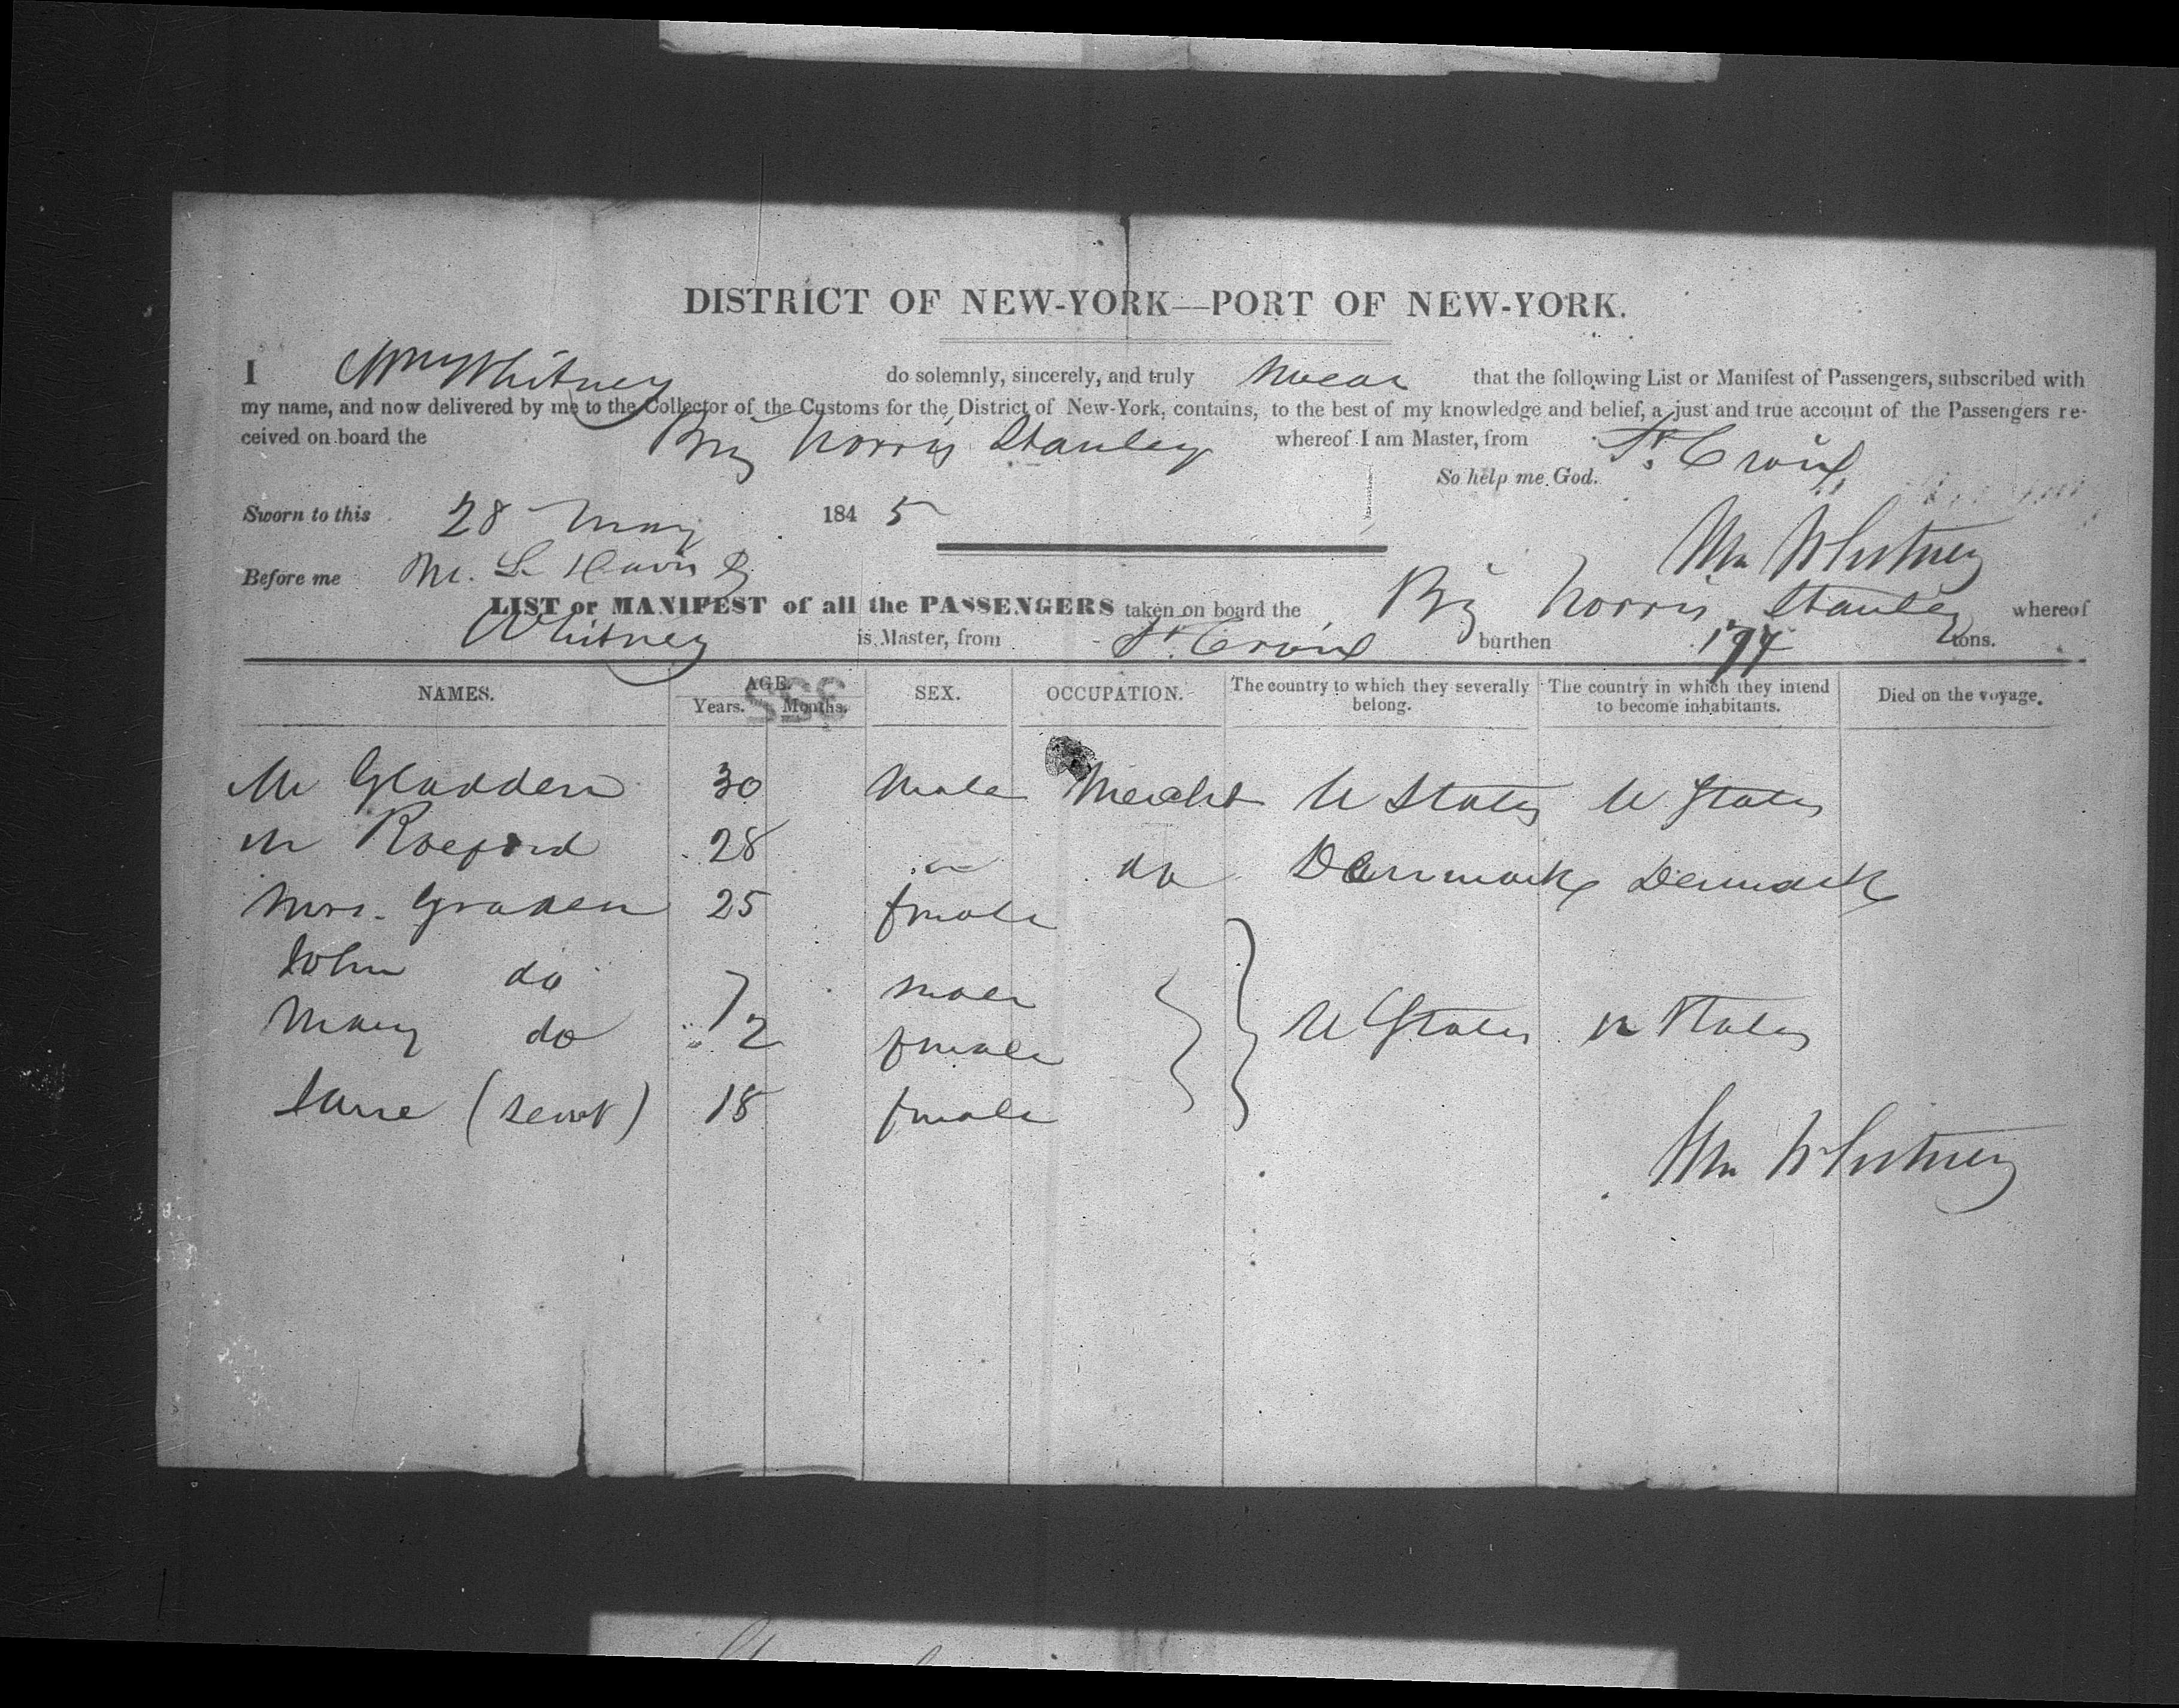 DISTRICT OF NEW-YORK—PORT OF NEW-YORK.
I Wm Whitney do solemnly, sincerely, and truly swear that the following List or Manifest of Passengers, subscribed with
my name, and now delivered by me to the Collector of the Customs for the District of New-York, contains, to the best of my knowledge and belief, a just and true account of the Passengers re-
ceived on board the Brig Norris Stanley whereof I am Master, from St. Croix
So help me God.
Sworn to this 28 May 184 5
Wm Whitney
Before me M. L. Davis
LIST or MANIFEST of all the PASSENGERS taken on board the Brig Norris Stanley whereof
Whitney is Master, from St. Croix burthen tons.
NAMES. AGE. Years. Months. SEX. OCCUPATION. The country to which they severally belong. The country in which they intend to become inhabitants. Died on the voyage.
Mr Gladden 30 Male Mercht U States U States
Mr 28 do Denmark Denmark
Mrs. Graden 25 female
John do 7 male
Mary do 2 female U States U States
Jane (servt) 18 female
Wm Whitney